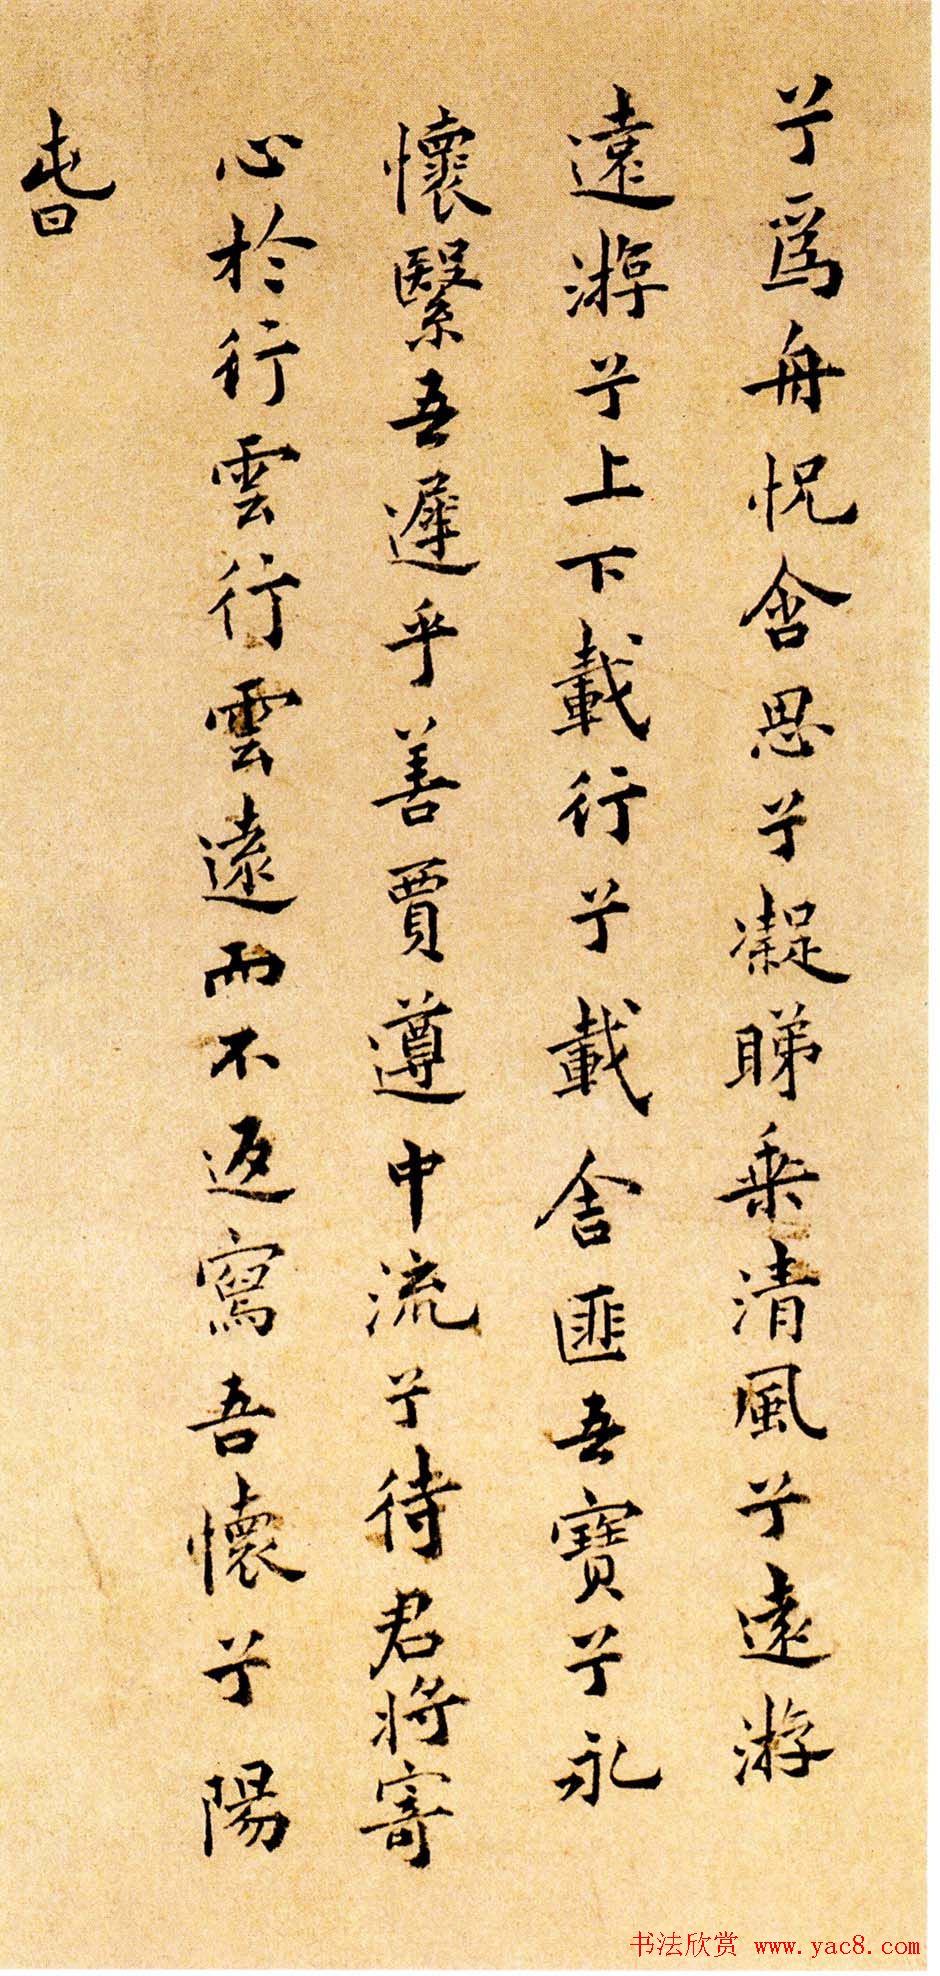 兮爲舟怳含思兮凝睇乗清風兮遠游
遠㳺兮上下載行兮載舍匪吾寶兮永
懷繄吾遲乎善賈遵中流兮待君將寄
心於行雲行雲遠而不返寫吾懷兮陽
旾
书法欣赏 www.yac8.com